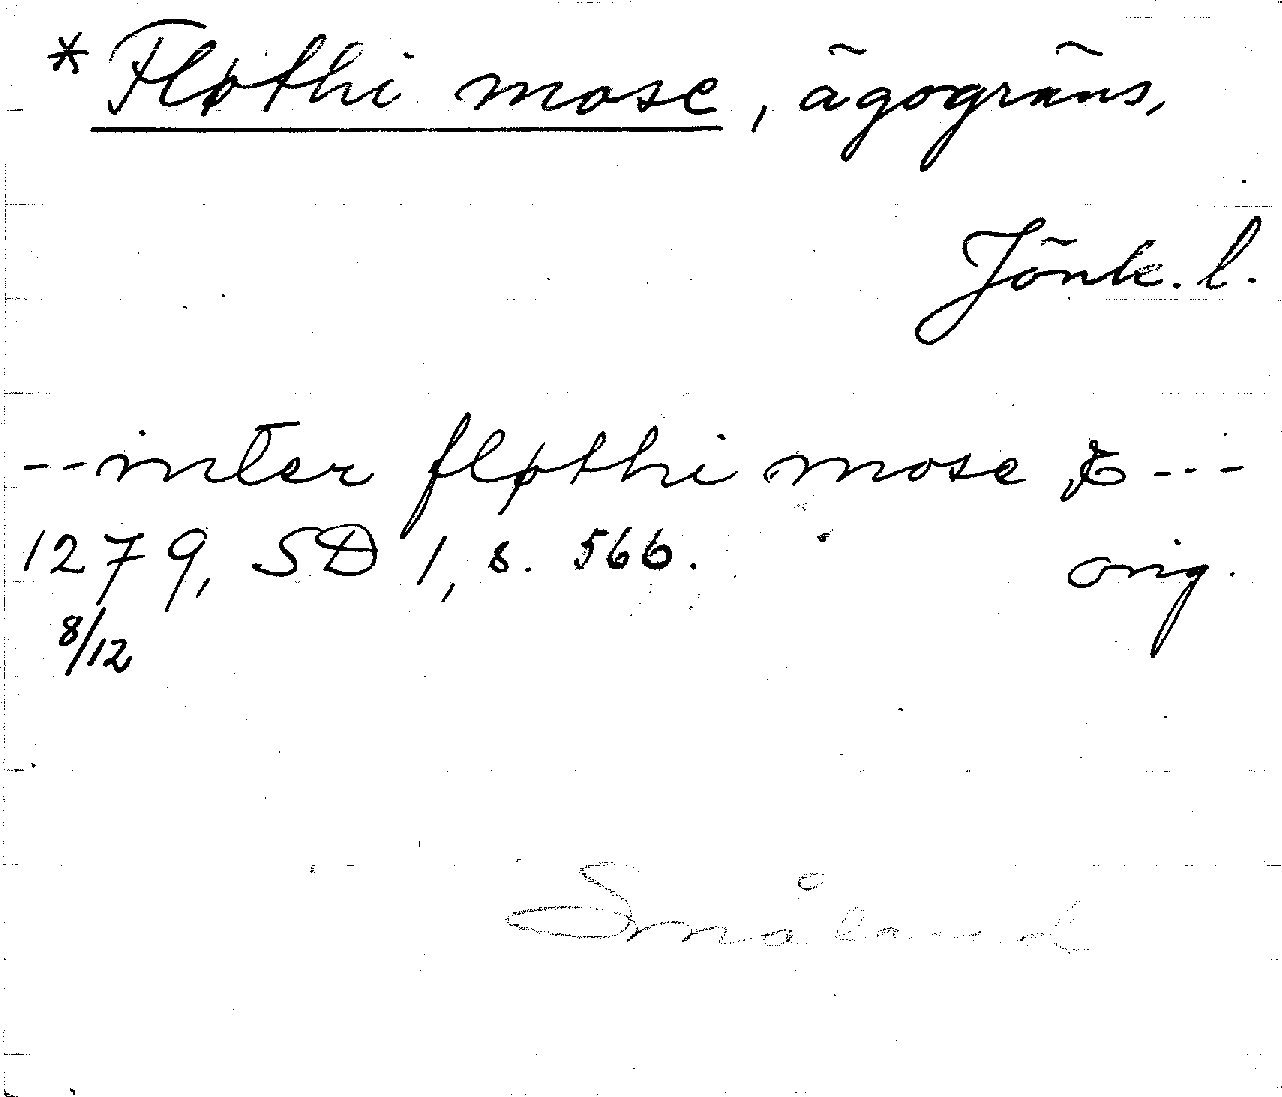 * Fløthi mose, ägogräns,
Jönk. l.
--inter fløthi mose & ---
1279, SD 1, s. 566. orig.
8/12
Småland